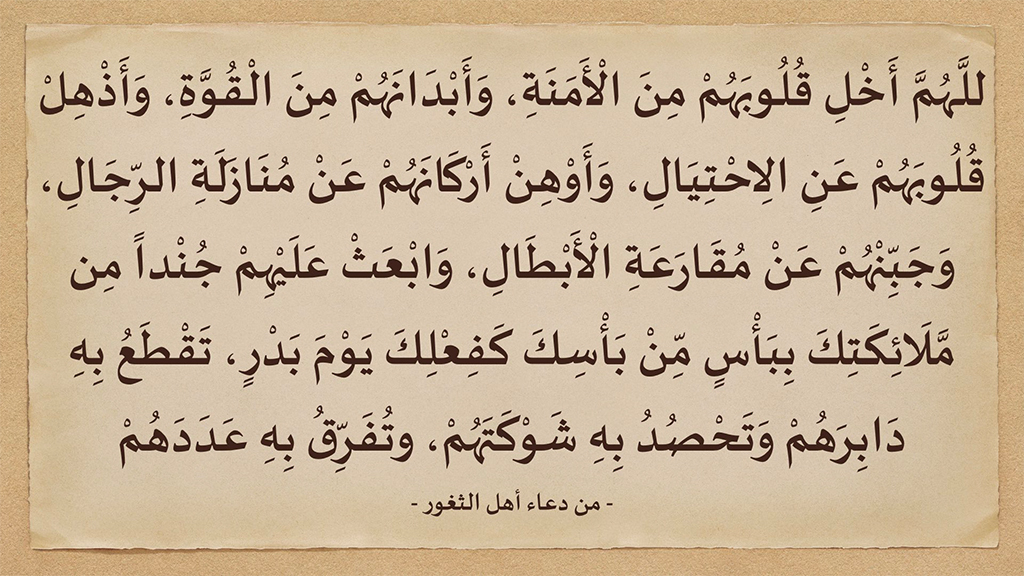 للَّهُمَّ أَخْلِ قُلُوبَهُمْ مِنَ الْأَمَنَةِ، وَأَبْدَانَهُمْ مِنَ الْقُوَّةِ، وَأَذْهِلْ
قُلُوبَهُمْ عَنِ الِاحْتِيَالِ، وَأَوْهِنْ أَرْكَانَهُمْ عَنْ مُنَازَلَةِ الرِّجَالِ،
وَجَبِّنْهُمْ عَنْ مُقَارَعَةِ الْأَبْطَالِ، وَابْعَثْ عَلَيْهِمْ جُنْداً مِن
مَّلَائِكَتِكَ بِبَأْسٍ مِّنْ بَأْسِكَ كَفِعْلِكَ يَوْمَ بَدْرٍ، تَقْطَعُ بِهِ
دَابِرَهُمْ وَتَحْصُدُ بِهِ شَوْكَتَهُمْ، وتُفَرِّقُ بِهِ عَدَدَهُمْ
- من دعاء أهل الثغور -